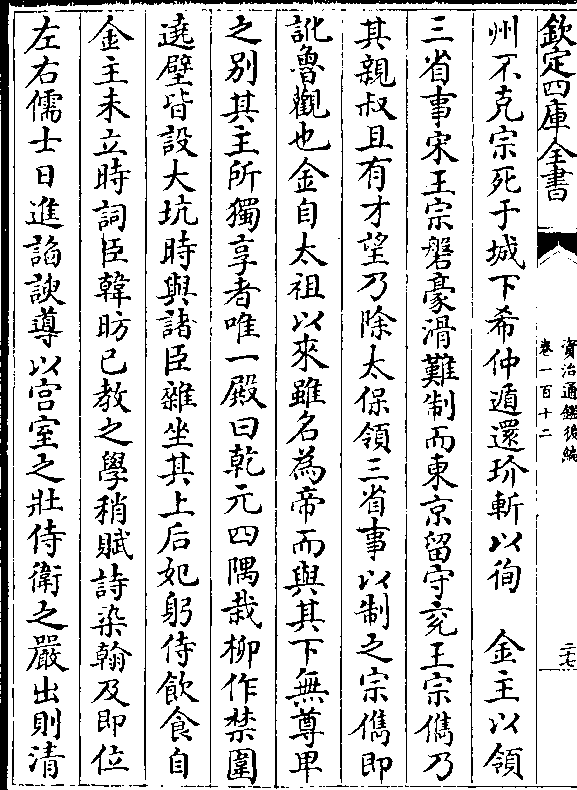 欽定四庫全書
資治通鑑後編
卷一百十二
州不克宗死于城下希仲遁還玠斬以徇　金主以領
三省事宋王宗磐豪滑難制而東京留守兖王宗儁乃
其親叔且有才望乃除太保領三省事以制之宗儁即
訛魯觀也金自太祖以來雖名為帝而與其下無尊卑
之别其主所獨享者唯一殿曰乾元四隅栽柳作禁圍
遶壁皆設大坑時與諸臣雜坐其上后妃躬侍飲食自
金主未立時詞臣韓昉已教之學稍賦詩染翰及即位
左右儒士日進諂諛導以宫室之壯侍衛之嚴出則清